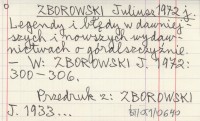 ZBOROWSKI Juliusz 1972 j.
Legendy i błędy w dawniej-
szych i nowszych wydaw-
nictwach o góralszczyźnie.
– W: ZBOROWSKI J. 1972:
300–306.
Przedruk z: ZBOROWSKI
J. 1933...